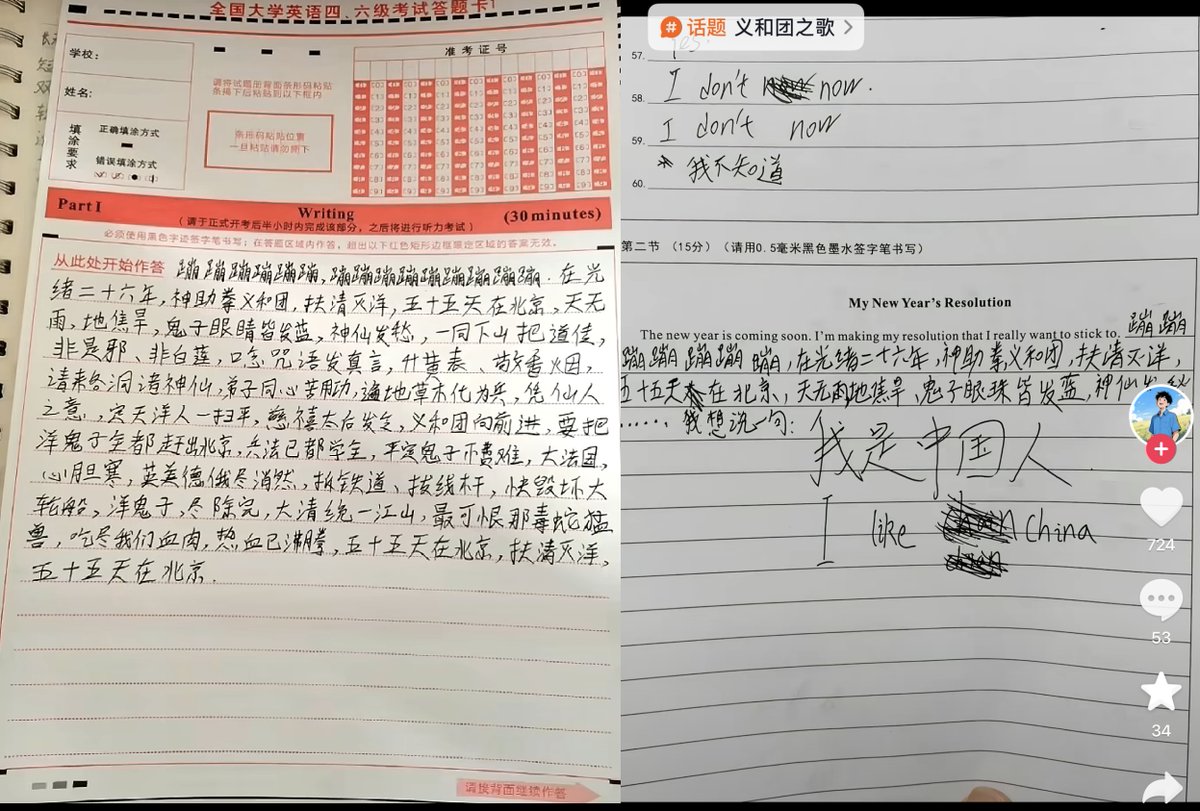 全国大学英语四、六级考试答题卡1
学校：
姓名：
填涂要求
正确填涂方式
错误填涂方式
请将试题册背面条形码粘贴
条揭下后粘贴到以下框内
条形码粘贴位置
一旦粘贴请勿撕下
准考证号
Part I
Writing
(30 minutes)
（请于正式开考后半小时内完成该部分，之后将进行听力考试）
必须使用黑色字迹签字笔书写；在答题区域内作答，超出以下红色矩形边框限定区域的答案无效。
从此处开始作答 蹦蹦蹦蹦蹦蹦，蹦蹦蹦蹦蹦蹦蹦蹦蹦．在光
绪二十六年，神助拳义和团，扶清灭洋，五十五天在北京，天无
雨，地焦旱，鬼子眼睛皆发蓝，神仙发愁，一同下山把道传，
非是邪、非白莲，口念咒语发真言，升黄表、敬香烟，
请来各洞诸神仙，弟子同心苦用功，遍地草木化为兵，凭仙人
之意，定天洋人一扫平，慈禧太后发令，义和团向前进，要把
洋鬼子全都赶出北京，兵法已都学全，平定鬼子不费难，大法国，
心胆寒，英美德俄尽消然，拆铁道、拔线杆，快毁坏大
轮船，洋鬼子，尽除完，大清统一江山，最可恨那毒蛇猛
兽，吃尽我们血肉，热血已沸腾，五十五天在北京，扶清灭洋，
五十五天在北京．
请接背面继续作答
话题 义和团之歌
57. Yes.
58. I don't now.
59. I don't now
60. 我不知道
第二节 （15分）（请用0.5毫米黑色墨水签字笔书写）
My New Year's Resolution
The new year is coming soon. I'm making my resolution that I really want to stick to. 蹦蹦
蹦蹦蹦 蹦蹦 蹦，在光绪二十六年，神助拳义和团，扶清灭洋，
五十五天在北京，天无雨地焦旱，鬼子眼珠皆发蓝，神仙
……我想说一句：我是中国人
I like China
724
53
34